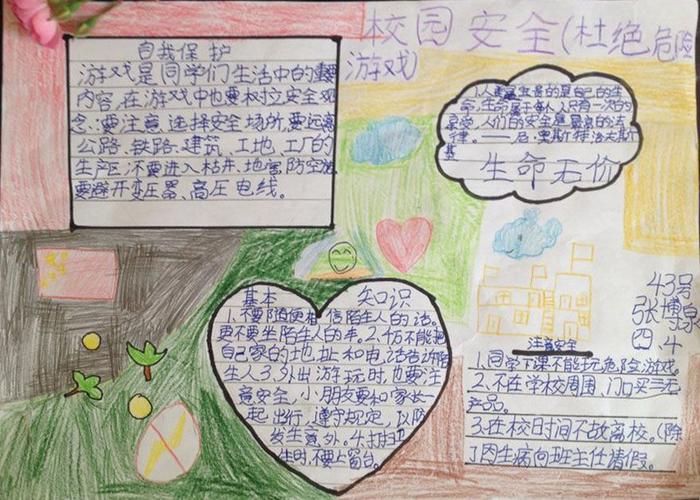 校园安全(杜绝危险
游戏)
自我保护
游戏是同学们生活中的重要
内容,在游戏中也要树立安全观
念:要注意选择安全场所,要远离
公路、铁路、建筑、工地、工厂的
生产区;不要进入枯井、地窖、防空
要避开变压器、高压电线。
1.人最宝贵的是自己的生
命,生命属于每人只有一次的
人们的安全是最高的法
律。——尼·奥斯特洛夫斯
基
生命无价
43号
张博
四.4
基本 知识
1.不要随便相信陌生人的话。
更不要坐陌生人的车。2.切不能把
自己家的地址和电话告诉陌
生人3.外出游玩时,也要注
意安全,小朋友要和家长一
起出行,遵守规定,以防
发生意外。4.打扫卫
生时,不要上窗台。
注意安全
1.同学下课不能玩危险游戏。
2.不在学校周围、门口买三无
产品。
3.在校日时间不故离校。(除
了因生病向班主任请假。